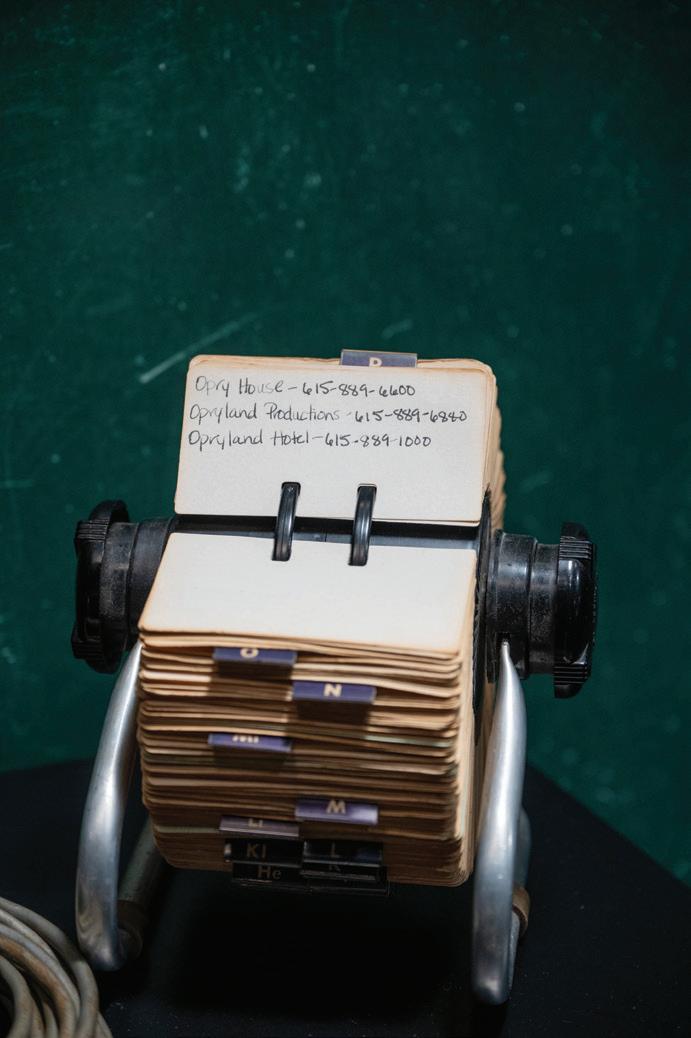 P
Opry House - 615-889-6600
Opryland Productions - 615-889-6880
Opryland Hotel - 615-889-1000
O
N
MI
M
LI
KI
L
He
K